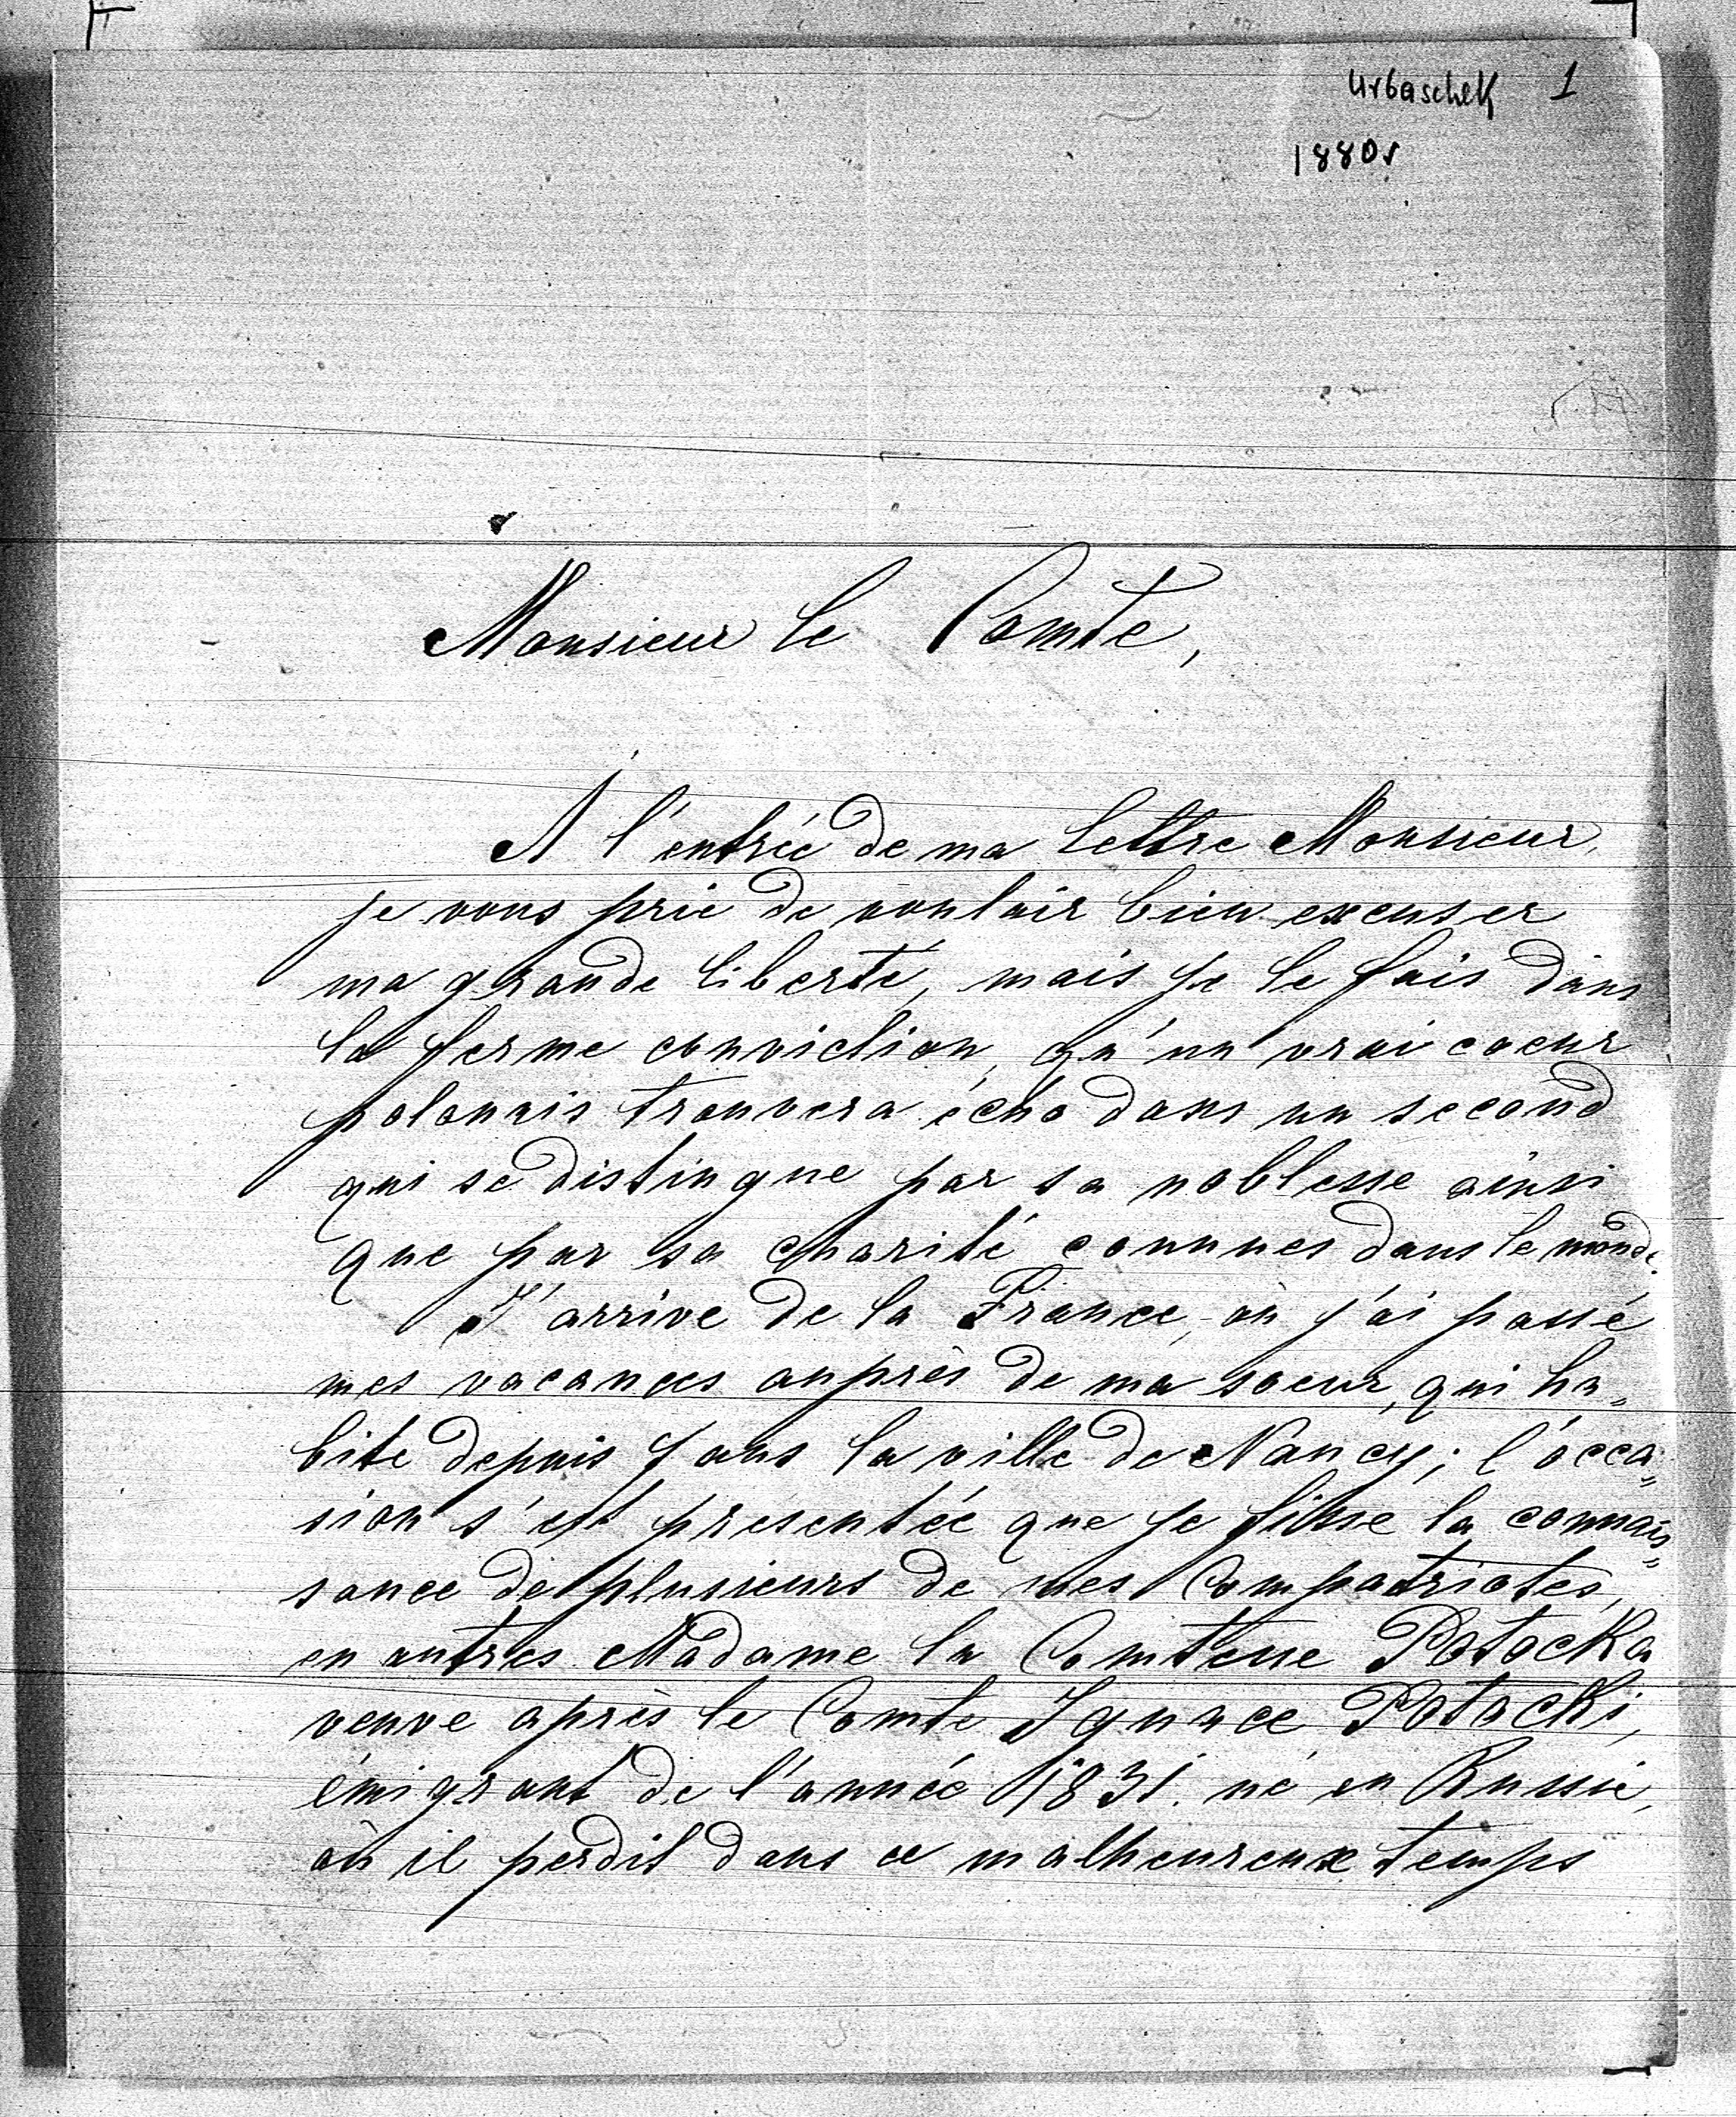 Urbaschek 1
1880r
Monsieur le Comte,
A l'entrée de ma lettre Monsieur,
je vous prie de vouloir bien excuser
ma grande liberté, mais je le fais dans
la ferme conviction, qu'un vrai coeur
polonais trouvera écho dans un second
qui se distingue par sa noblesse ainsi
que par sa charité connues dans le monde.
J'arrive de la France, où j'ai passé
mes vacances auprès de ma soeur, qui ha„
bite depuis ans la ville de Nancy; l'occa„
sion s'est presentée que je fisse la connais„
sance de plusieurs de mes Compatriotes,
en autres Madame la Comtesse Potocka
veuve après le Comte Ignace Potocki,
émigrant de l'année 1831. né en Russie,
où il perdit dans ce malheureux temps